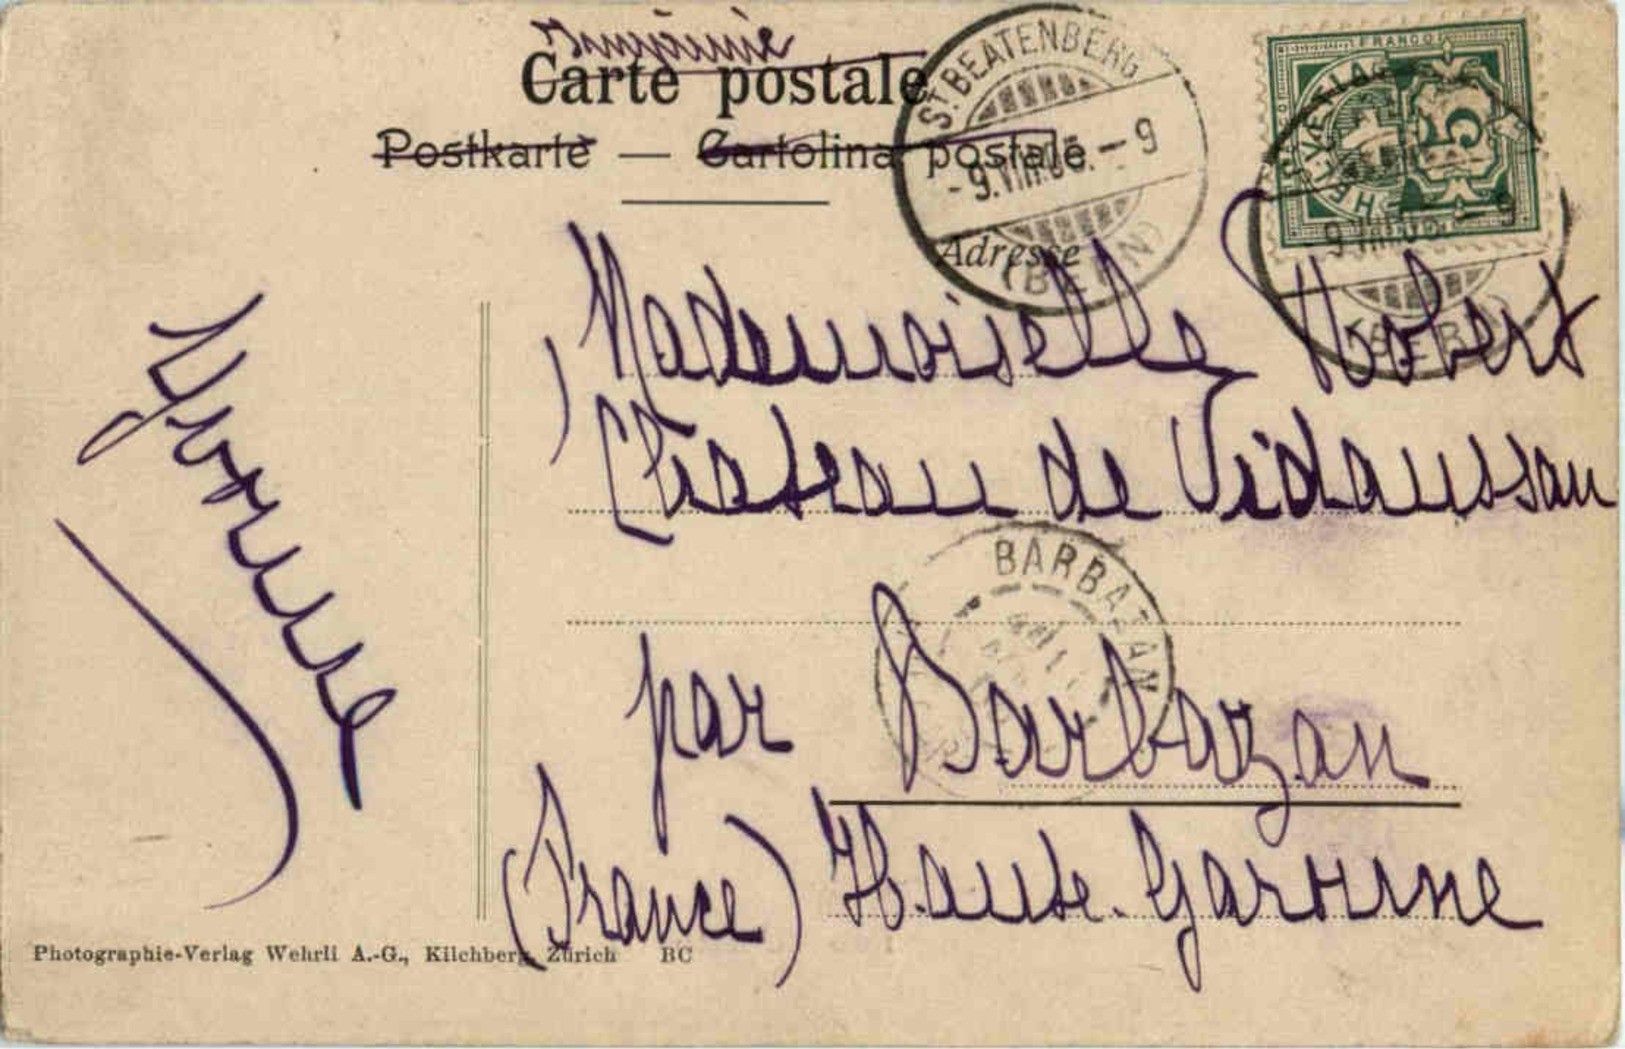 Imprimé
Carte postale
Postkarte — Cartolina postale
ST. BEATENBERG
-9.VIII.06.-9
(BERN)
FRANCO
HELVETIA
5
-9.VIII.06.-9
(BERN)
Adresse
Mademoiselle Hobert
Château de Vidaussan
BARBAZAN
par Barbazan
(France) Haute-Garonne
Yvonne
Photographie-Verlag Wehrli A.-G., Kilchberg, Zürich BC